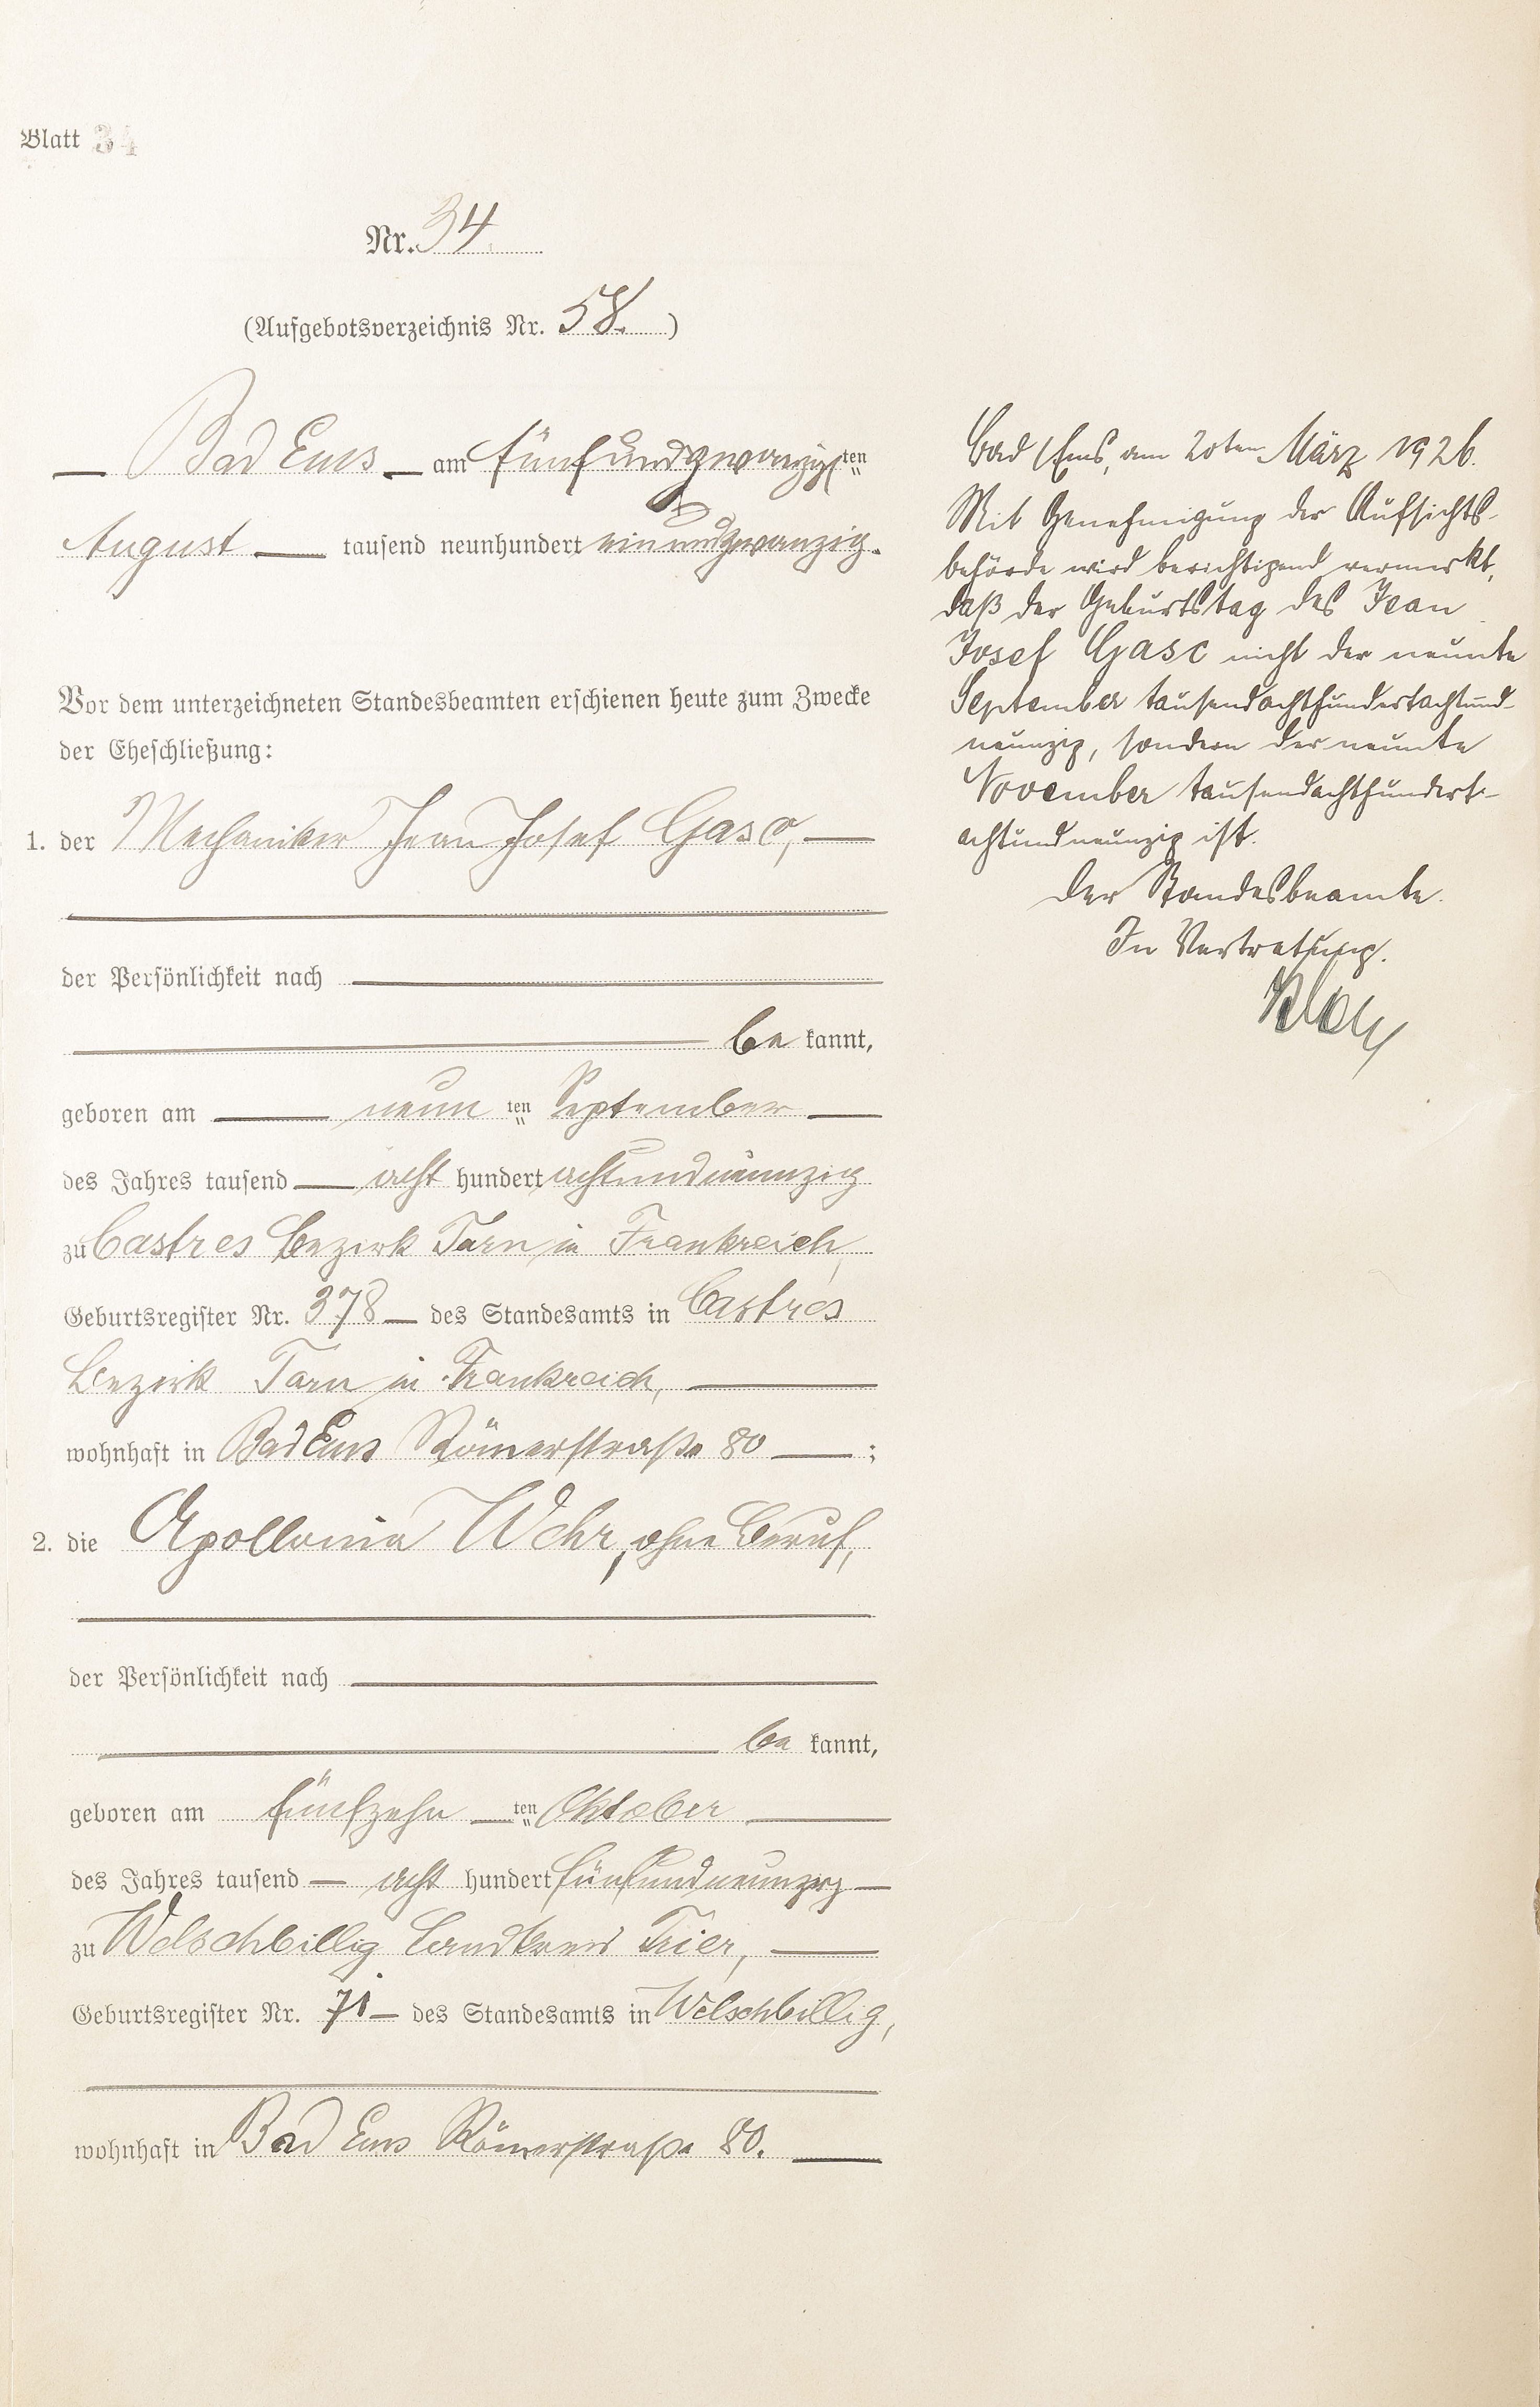 Blatt 34
Nr. 34.
(Aufgebotsverzeichnis Nr. 58.)
Bad Ems am fünfundzwanzigsten
August tausend neunhundert einundzwanzig.
Vor dem unterzeichneten Standesbeamten erschienen heute zum Zwecke
der Eheschließung:
1. der Mechaniker Jean Josef Gasc,
der Persönlichkeit nach
be kannt,
geboren am neun ten September
des Jahres tausend acht hundert achtundneunzig
zu Castres Bezirk Tarn in Frankreich,
Geburtsregister Nr. 378 des Standesamts in Castres
Bezirk Tarn in Frankreich,
wohnhaft in Bad Ems Römerstraße 80 ;
2. die Apollonia Wehr, ohne Beruf,
der Persönlichkeit nach
be kannt,
geboren am fünfzehn ten Oktober
des Jahres tausend acht hundert fünfundneunzig
zu Welschbillig Landkreis Trier,
Geburtsregister Nr. 71 des Standesamts in Welschbillig,
wohnhaft in Bad Ems Römerstraße 80.
Bad Ems, am 20ten März 1926.
Mit Genehmigung der Aufsichts-
behörde wird berichtigend vermerkt,
daß der Geburtstag des Jean
Josef Gasc nicht der neunte
September tausendachthundertachtund-
neunzig, sondern der neunte
November tausendachthundert-
achtundneunzig ist.
Der Standesbeamte.
In Vertretung.